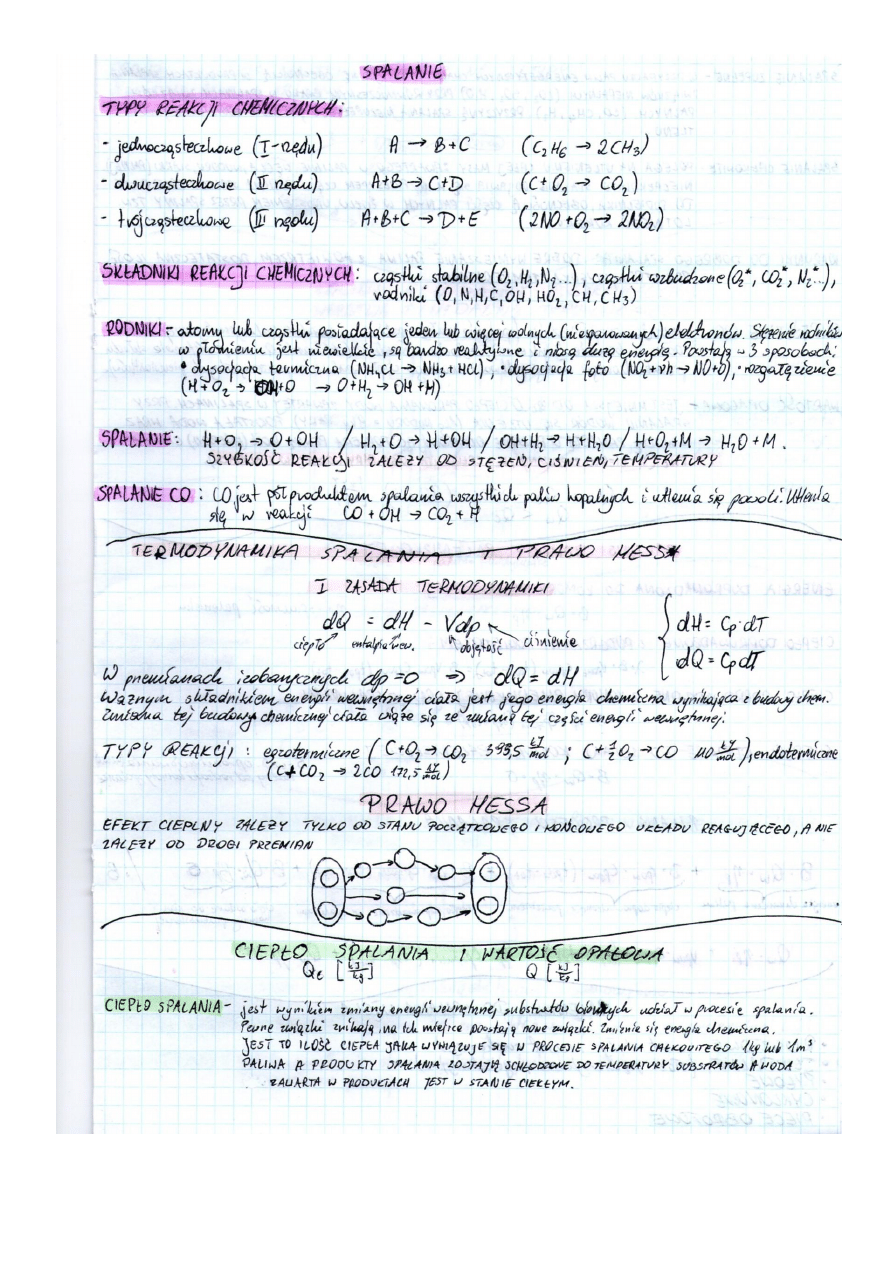 SPALANIE
TYPY REAKCJI CHEMICZNYCH:
- jednocząsteczkowe (I-rzędu) A → B+C (C₂H₆ → 2CH₃)
- dwucząsteczkowe (II rzędu) A+B → C+D (C+O₂ → CO₂)
- trójcząsteczkowe (III rzędu) A+B+C → D+E (2NO+O₂ → 2NO₂)
SKŁADNIKI REAKCJI CHEMICZNYCH: cząstki stabilne (O₂, H₂, N₂...), cząstki wzbudzone (O₂*, CO₂*, N₂*...),
rodniki (O, N, H, C, OH, HO₂, CH, CH₃)
RODNIKI - atomy lub cząstki posiadające jeden lub więcej wolnych (niesparowanych) elektronów. Stężenie rodników
w płomieniu jest niewielkie, są bardzo reaktywne i niosą dużą energię. Powstają w 3 sposoby:
• dysocjacja termiczna (NH₄Cl → NH₃+HCl), • dysocjacja foto (NO₂+νh → NO+O), • rozgałęzienie
(H+O₂ → OH+O → O+H₂ → OH+H)
SPALANIE: H+O₂ → O+OH / H₂+O → H+OH / OH+H₂ → H+H₂O / H+O₂+M → H₂O+M.
SZYBKOŚĆ REAKCJI ZALEŻY OD STĘŻEŃ, CIŚNIEŃ, TEMPERATURY
SPALANIE CO: CO jest półproduktem spalania wszystkich paliw kopalnych i utlenia się powoli. Utlenia
się w reakcji CO + OH → CO₂ + H
TERMODYNAMIKA SPALANIA I PRAWO HESSA
I ZASADA TERMODYNAMIKI
dQ = dH - Vdp
ciepło entalpia wew. objętość ciśnienie
dH = Cp·dT
dQ = CpdT
W przemianach izobarycznych dp=0 ⇒ dQ = dH
Ważnym składnikiem energii wewnętrznej ciała jest jego energia chemiczna wynikająca z budowy chem.
Zmiana tej budowy chemicznej ciała wiąże się ze zmianą tej części energii wewnętrznej.
TYPY REAKCJI: egzotermiczne (C+O₂ → CO₂ 393,5 kJ/mol ; C+½O₂ → CO 110 kJ/mol), endotermiczne
(C+CO₂ → 2CO 172,5 kJ/mol)
PRAWO HESSA
EFEKT CIEPLNY ZALEŻY TYLKO OD STANU POCZĄTKOWEGO I KOŃCOWEGO UKŁADU REAGUJĄCEGO, A NIE
ZALEŻY OD DROGI PRZEMIAN
CIEPŁO SPALANIA I WARTOŚĆ OPAŁOWA
Qc [kJ/kg] Q [kJ/kg]
CIEPŁO SPALANIA - jest wynikiem zmiany energii wewnętrznej substratów biorących udział w procesie spalania.
Pewne związki znikają i na ich miejsce powstają nowe związki. Zmienia się energia chemiczna.
JEST TO ILOŚĆ CIEPŁA JAKA WYWIĄZUJE SIĘ W PROCESIE SPALANIA CAŁKOWITEGO 1kg lub 1m³
PALIWA A PRODUKTY SPALANIA ZOSTAJĄ SCHŁODZONE DO TEMPERATURY SUBSTRATÓW A WODA
ZAWARTA W PRODUKTACH JEST W STANIE CIEKŁYM.